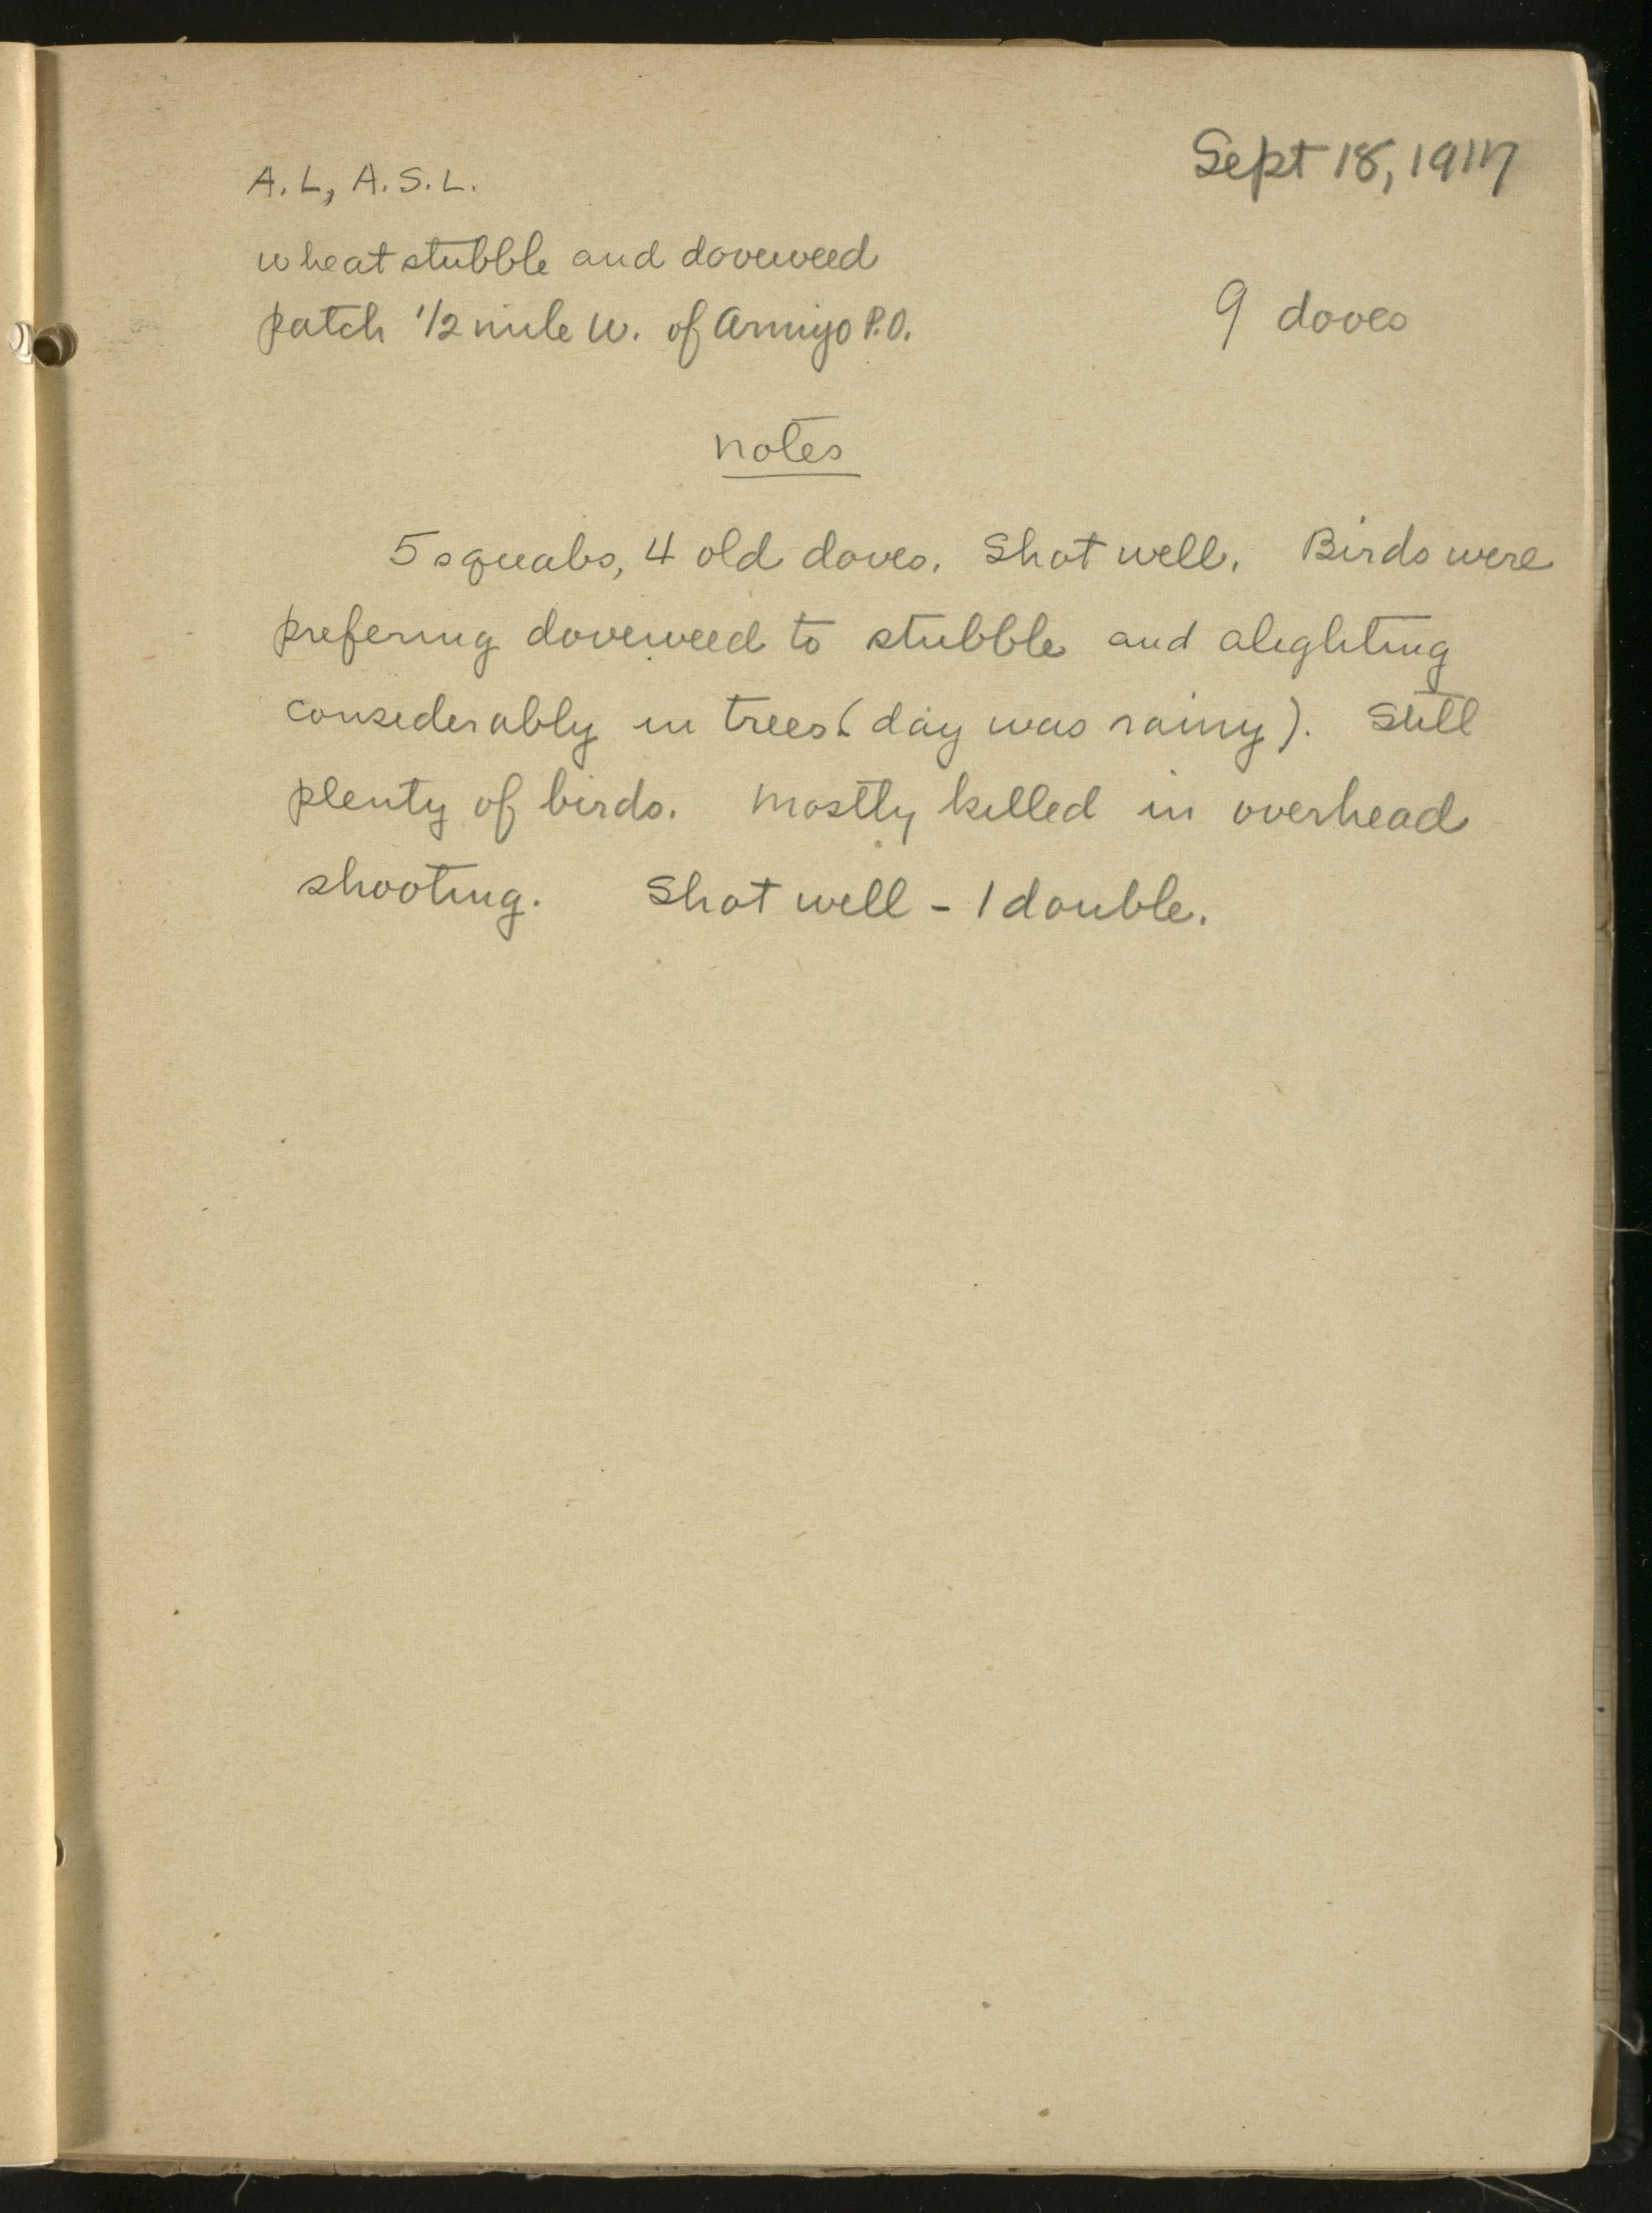 Sept 18, 1917
A. L., A. S. L.
wheat stubble and doveweed
patch 1/2 mile W. of Armijo P.O.
9 doves
notes
5 squabs, 4 old doves. Shot well. Birds were
prefering doveweed to stubble and alighting
considerably in trees (day was rainy). Still
plenty of birds. Mostly killed in overhead
shooting. Shot well - 1 double.